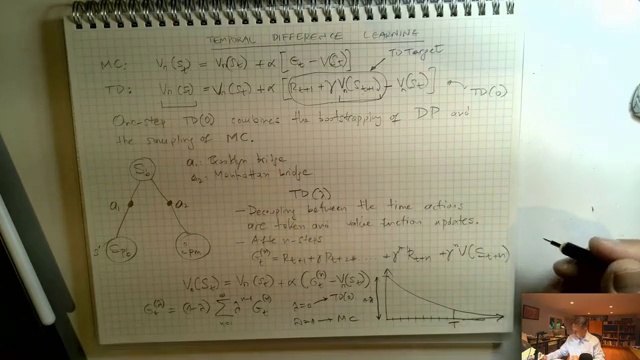 TEMPORAL DIFFERENCE LEARNING
TD Target
MC: Vπ(St) = Vπ(St) + α [Gt − V(St)]
TD: Vπ(St) = Vπ(St) + α [Rt+1 + γVπ(St+1) − Vπ(St)] TD(0)
One-step TD(0) combines the bootstrapping of DP and
the sampling of MC.
Sb
a1: Brooklyn bridge
a2: Manhattan bridge
a1 a2
s'
TD(λ)
- Decoupling between the time actions
are taken and value function updates.
- After n-steps
Gt(n) = Rt+1 + γRt+2 + γ Rt+n + γⁿ V(St+n)
Vπ(St) = Vπ(St) + α (Gt(n) − V(St))
λ=0 → TD(0)
λ=1 → MC
T